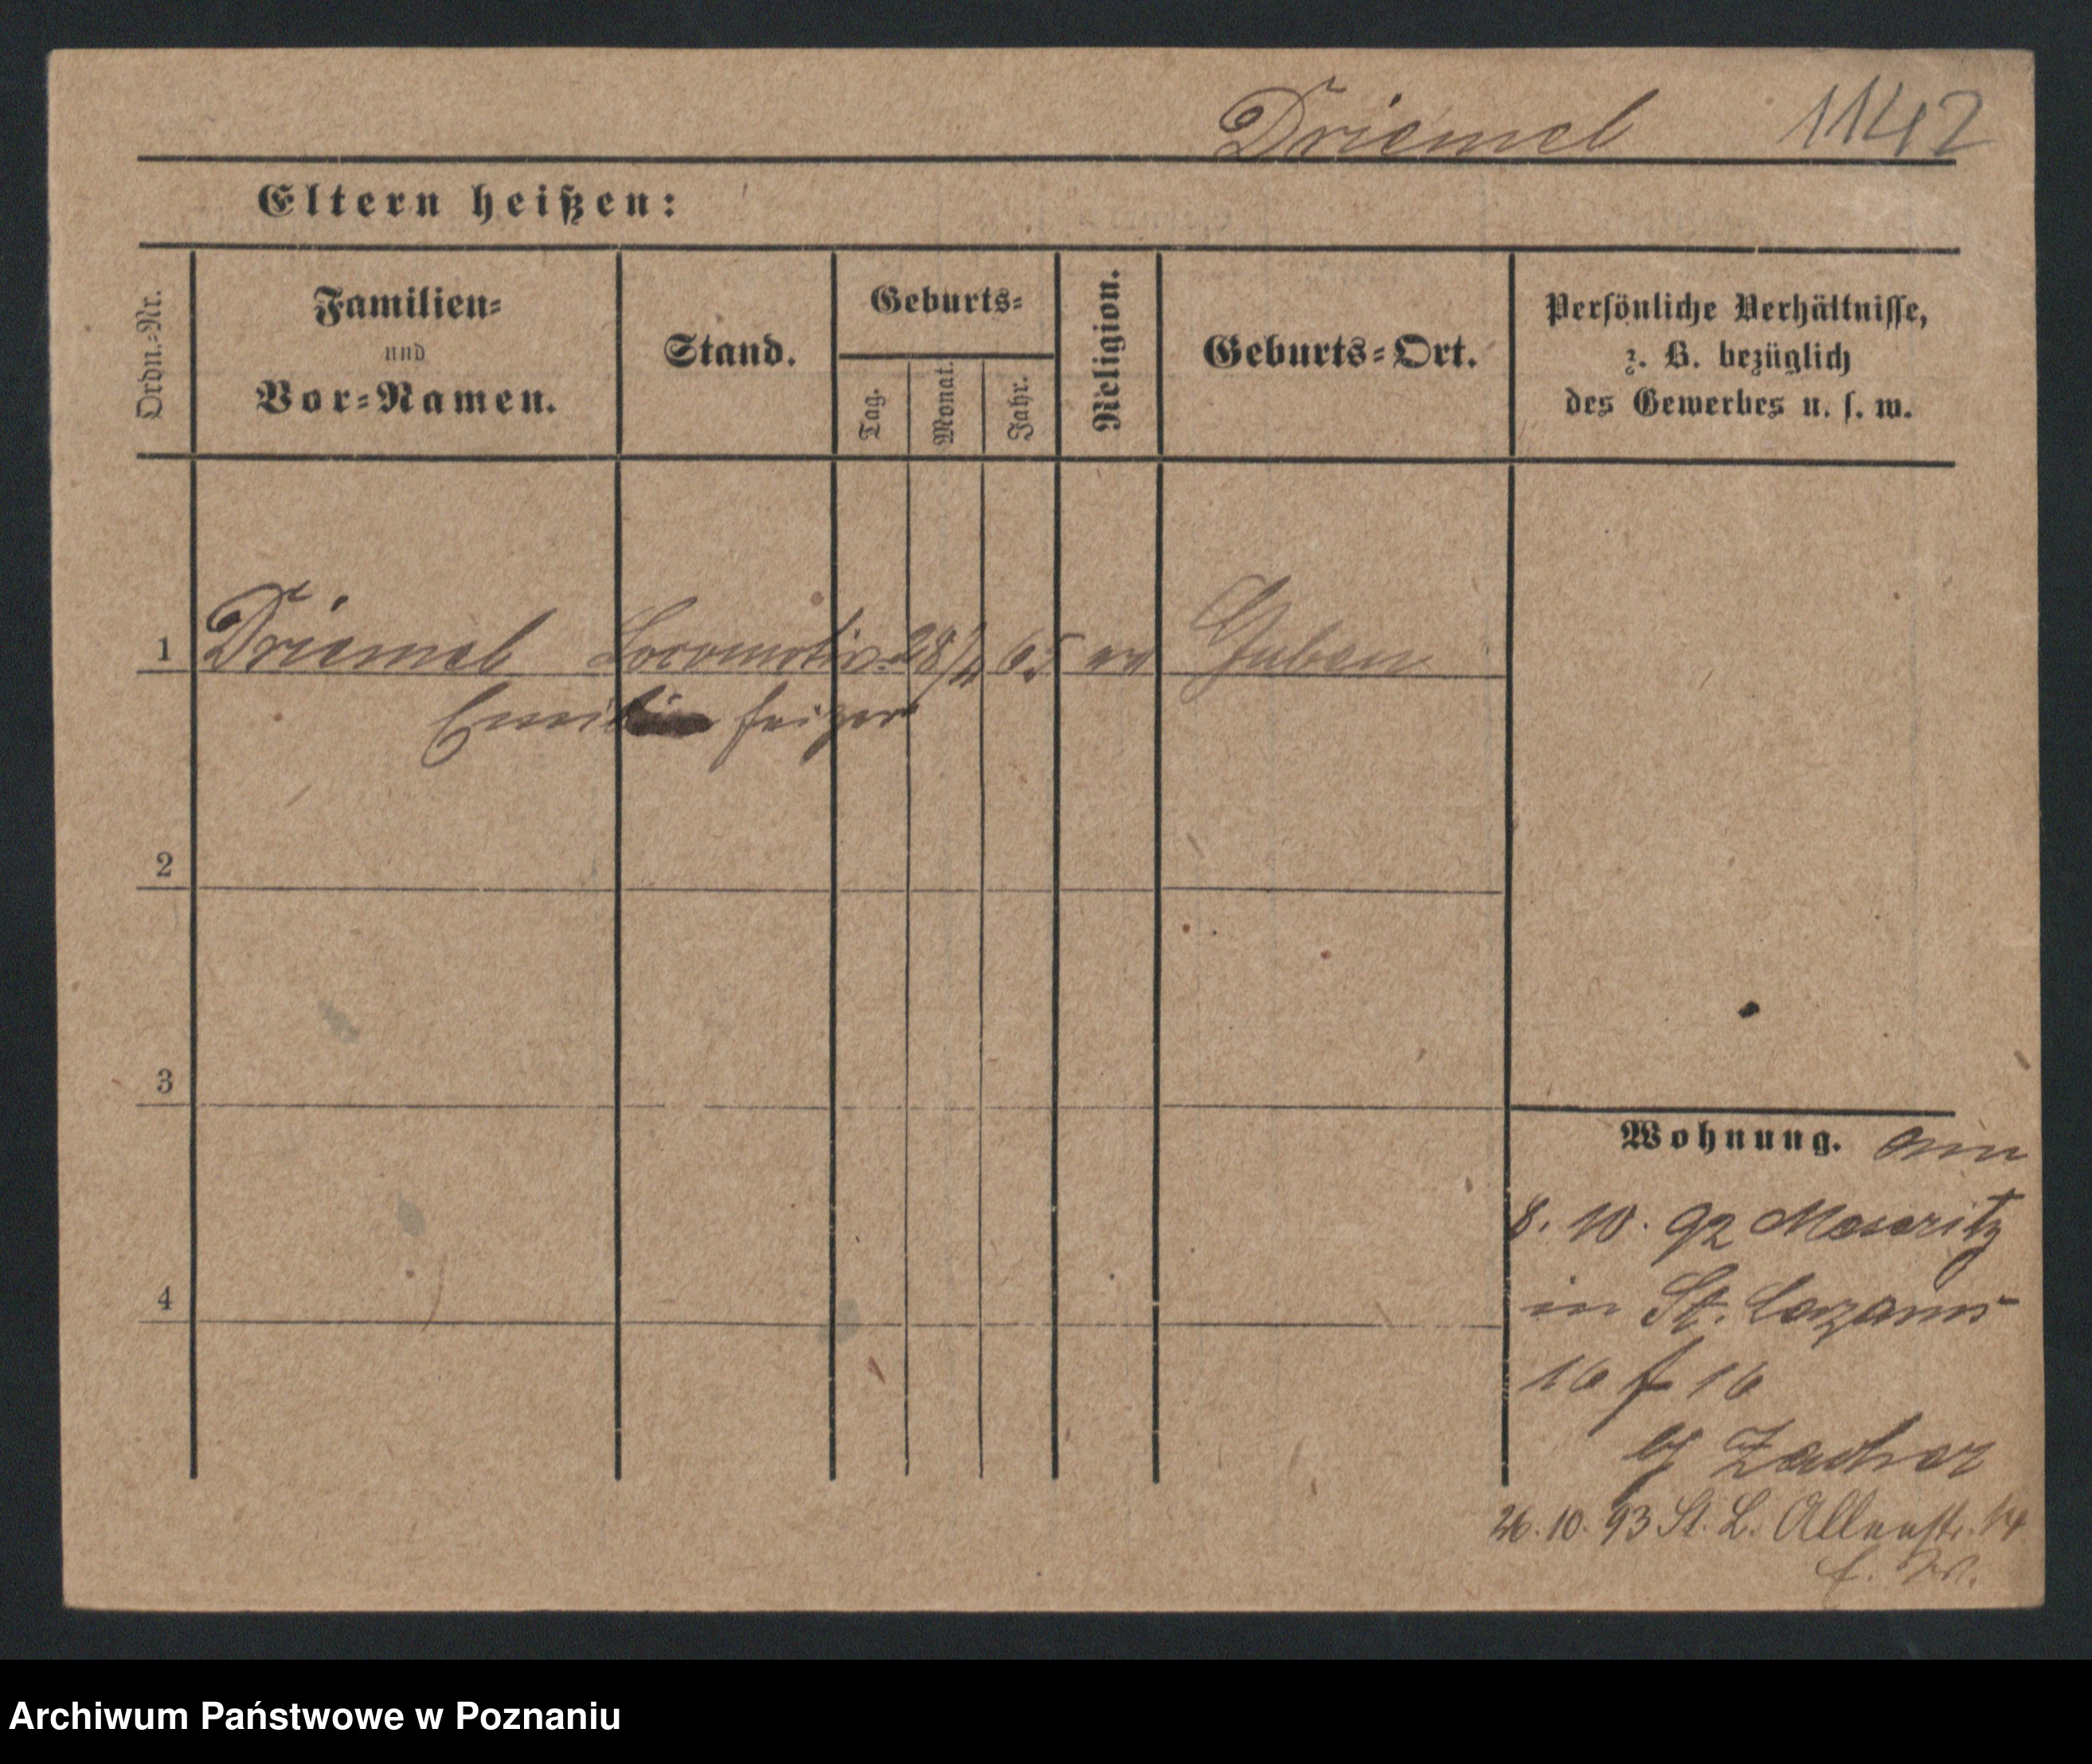 Driemel 1142
Eltern heißen:
Ordn.-Nr.
Familien-
und
Vor-Namen.
Stand.
Geburts-
Tag.
Monat.
Jahr.
Religion.
Geburts-Ort.
Persönliche Verhältnisse,
z. B. bezüglich
des Gewerbes u. s. w.
1 Driemel Locomotiv- 28/4 65 ev Guben
Emil heizer
2
3
4
Wohnung.
8. 10. 92 Meseritz
in St. Lazarus
16 16
Zachar
26. 10. 93 St. L. 14
Archiwum Państwowe w Poznaniu